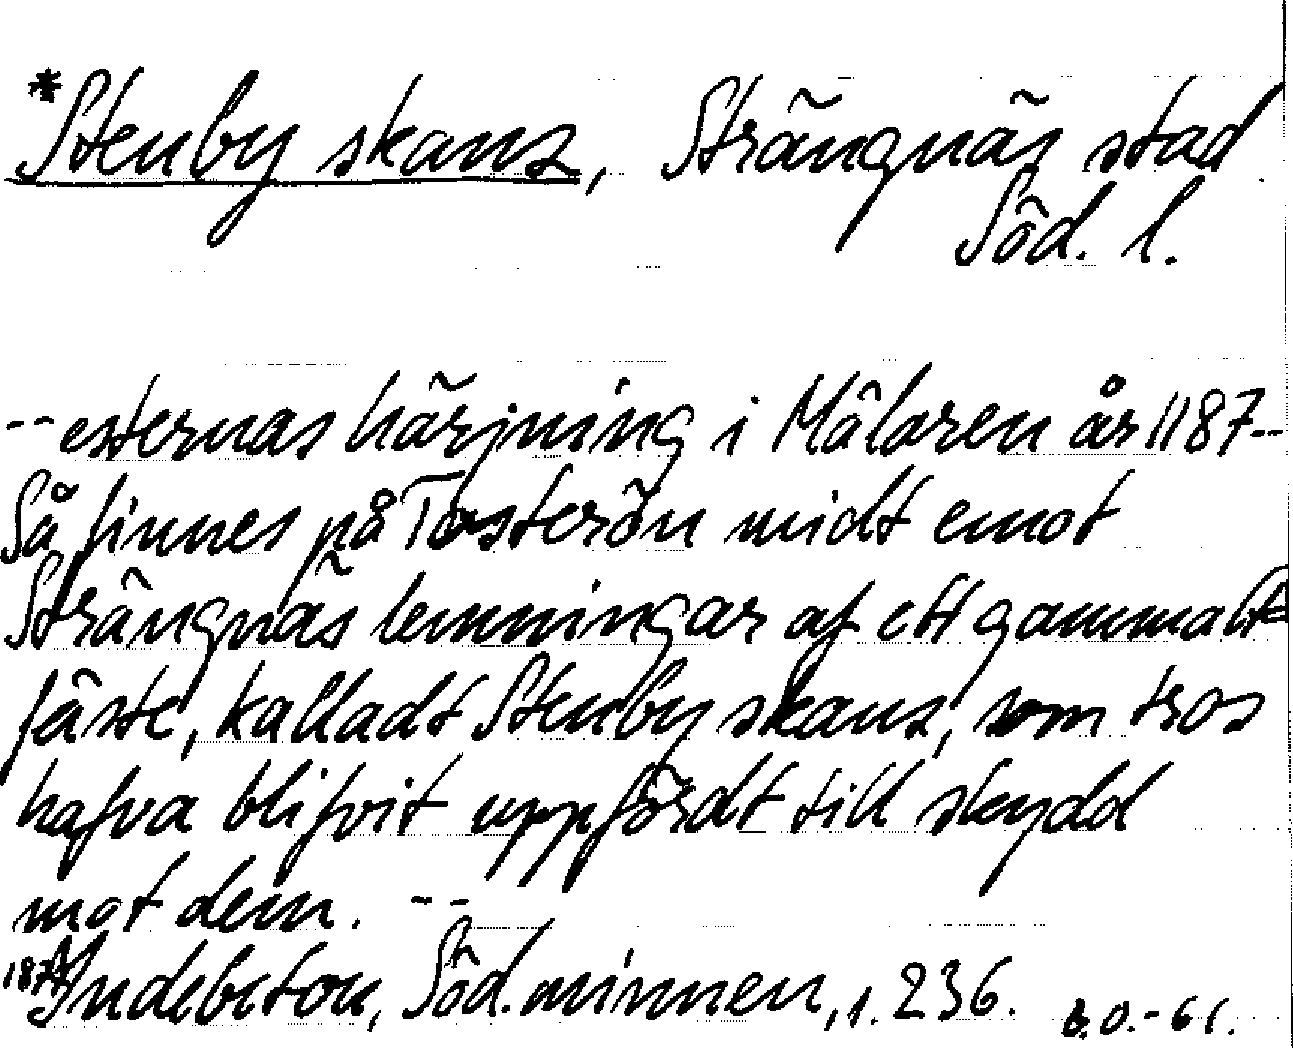 *Stenby skans, Strängnäs stad
Söd. l.
-- esternas härjning i Mälaren år 1187 --
Så finnes på Tosterön midt emot
Strängnäs lemningar af ett gammalt
fäste, kalladt Stenby skans, som tros
hafva blifvit uppfördt till skydd
mot dem. --
Indebetou, Söd. minnen, 1. 236.
B.O.-61.